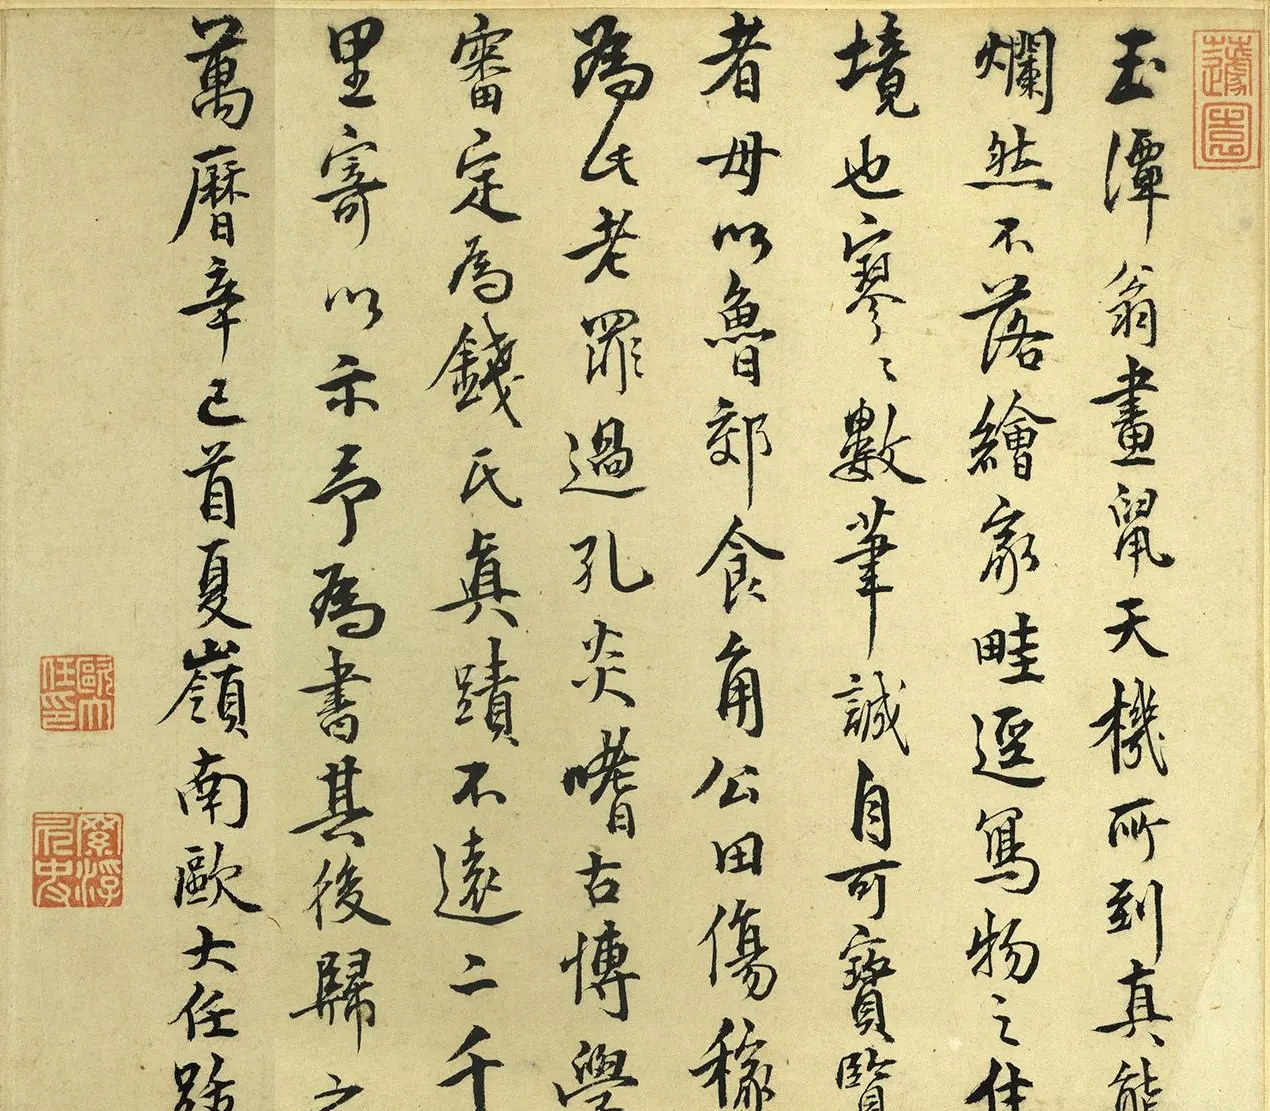 玉潭翁畫鼠天機所到真能
爛然不落繪家畦逕寫物之佳
境也寥〻數筆誠自可寶賢
者毋以魯郊食角公田傷稼
為氏老罪過孔炎嗜古博學
審定為錢氏真蹟不遠二千
里寄以示予為書其後歸之
萬曆辛巳首夏嶺南歐大任跋
歐大任印